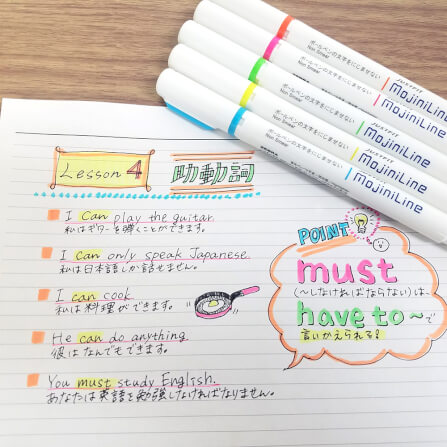 ボールペンの文字をにじませない
Non Smear
JUSTFIT
MojiniLine
ボールペンの文字をにじませない
Non Smear
JUSTFIT
MojiniLine
ボールペンの文字をにじませない
Non Smear
JUSTFIT
MojiniLine
ボールペンの文字をにじませない
Non Smear
JUSTFIT
MojiniLine
Lesson 4 助動詞
I can play the guitar.
私はギターを弾くことができます。
I can only speak Japanese.
私は日本語しか話せません。
I can cook
私は料理ができます。
He can do anything
彼はなんでもできます。
You must study English.
あなたは英語を勉強しなければなりません。
POINT
must
(〜しなければならない)は、
have to〜で
言いかえられる!